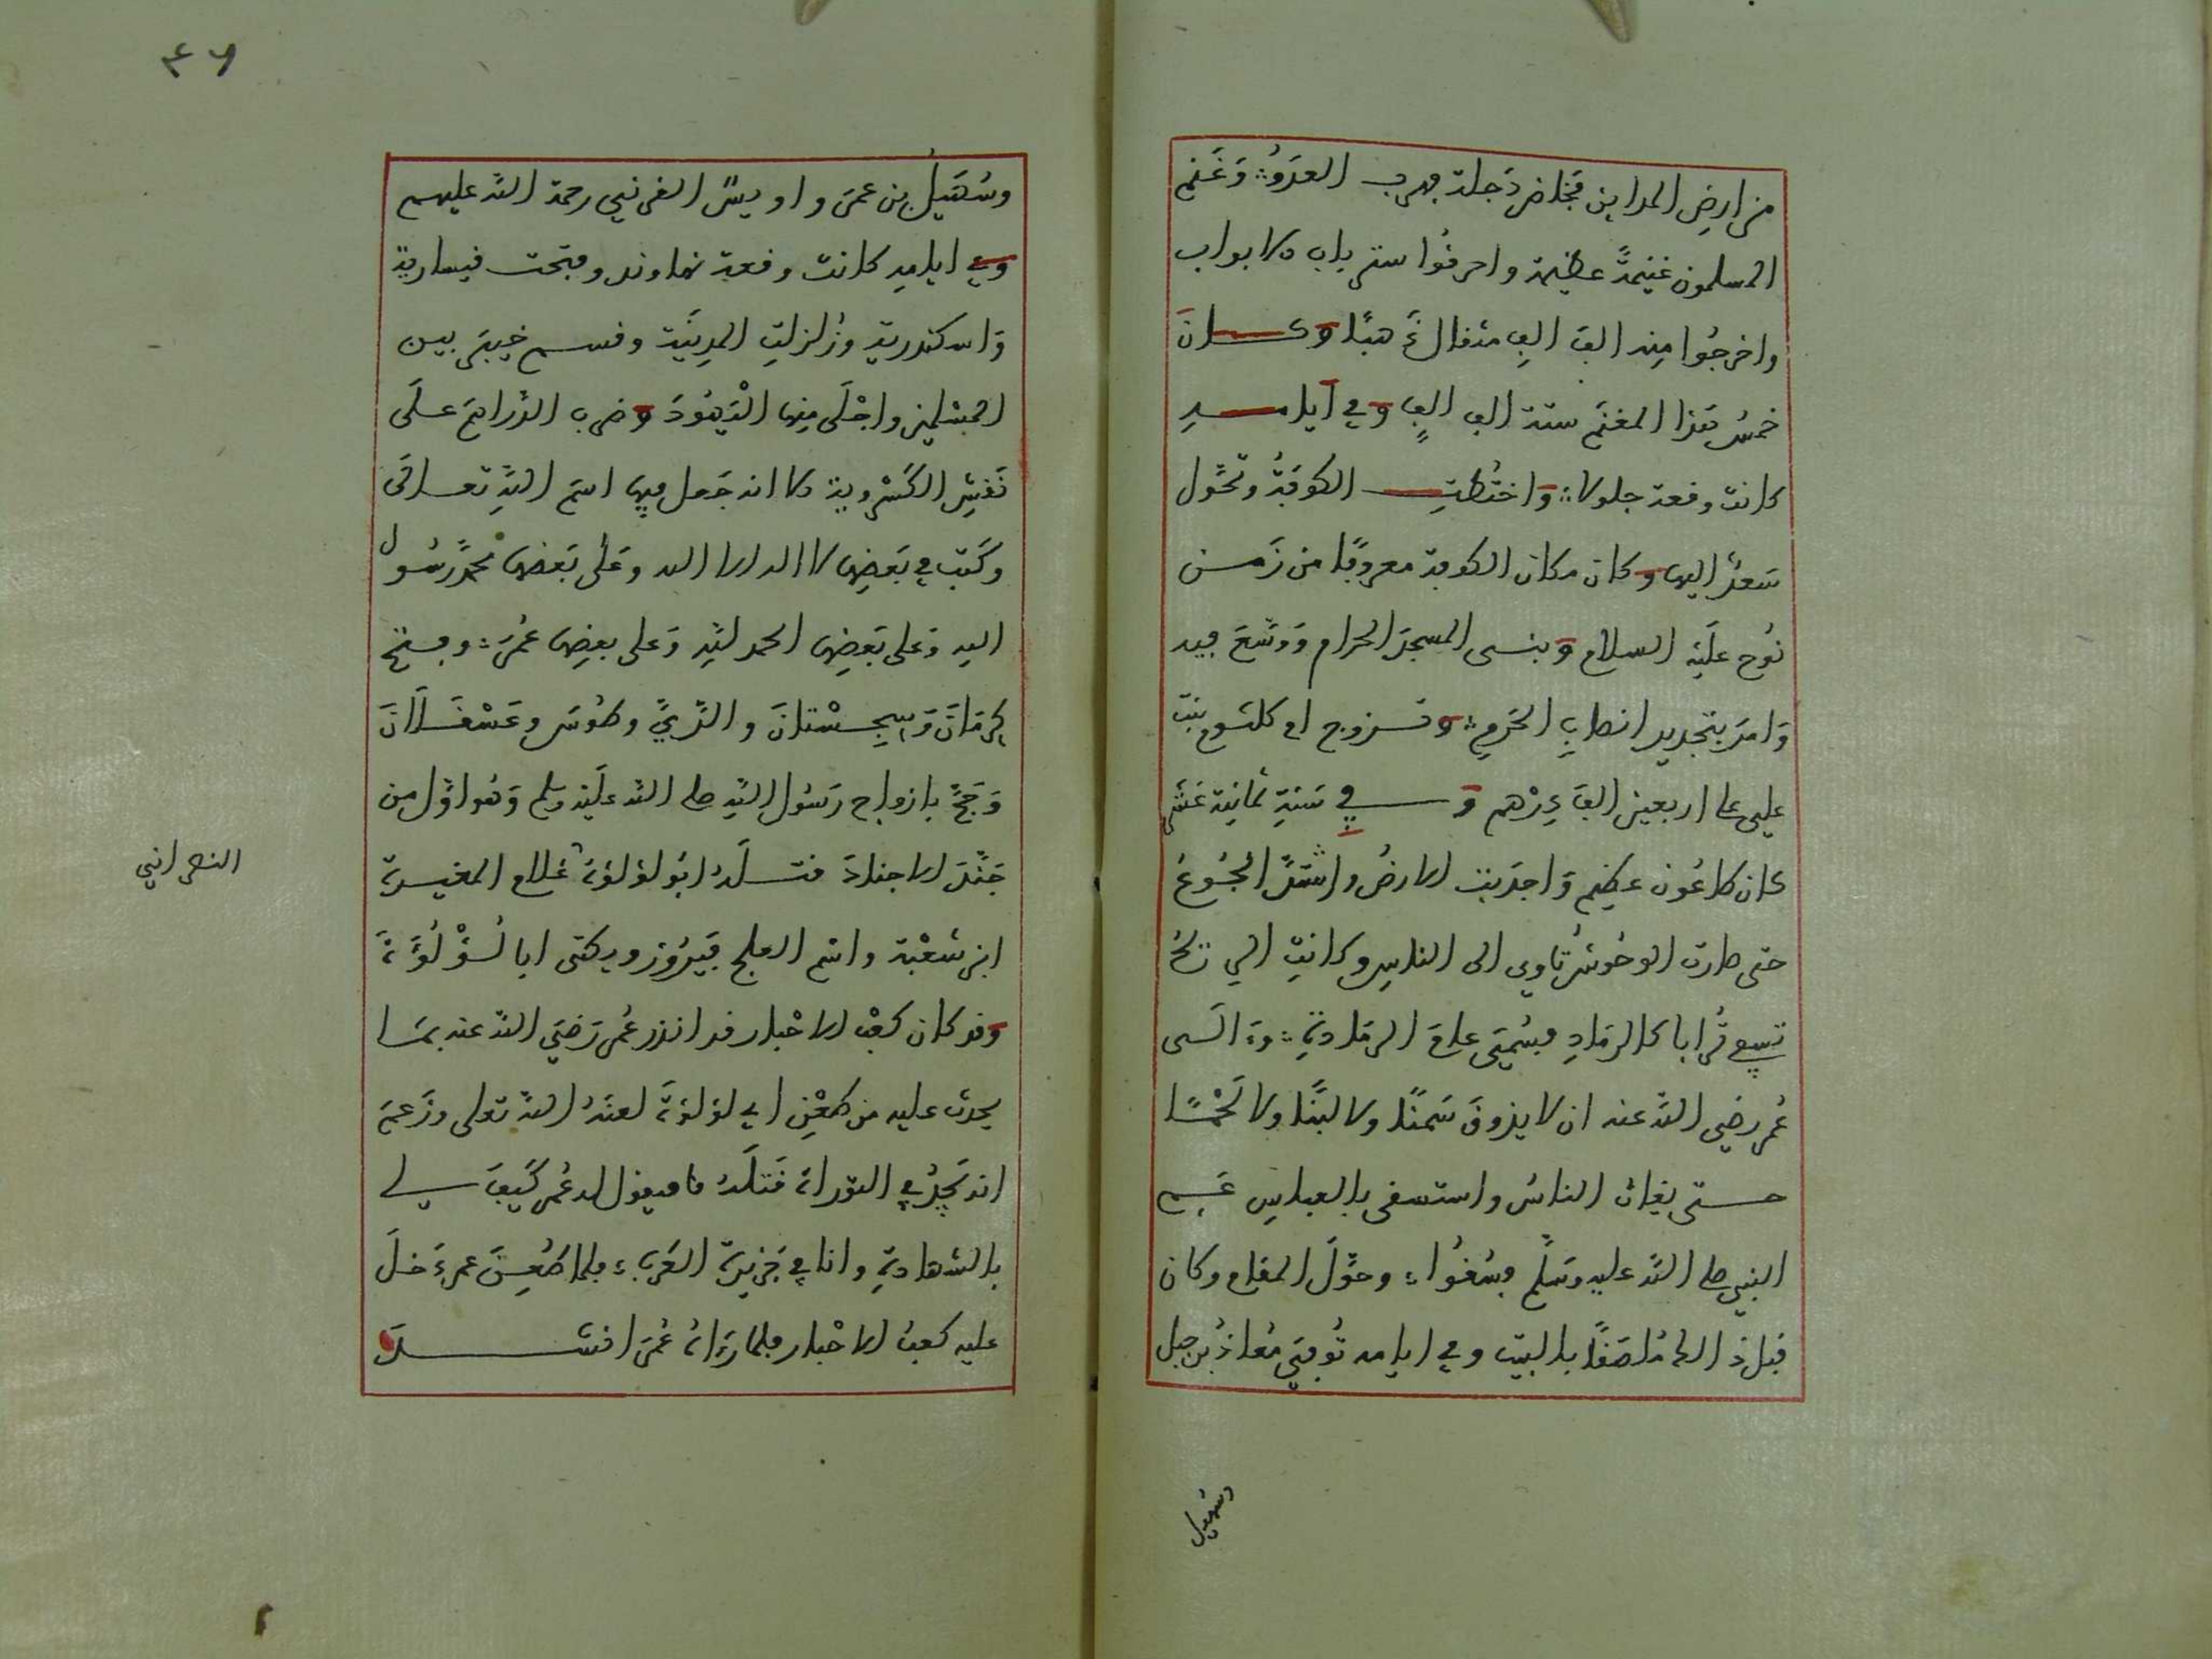 من ارض المداين مخاض دجلة فهرب العدو وغنم
المسلمون غنيمةً عظيمة واحرقوا ستر باب الابواب
واخرجوا منه الف الف مثقال ذهبًا وكان
خمسُ هذا المغنم ستة الف الفٍ وفي ايامه
كانت وقعة جلولا واختُطتِ الكوفةُ وتحوّل
سعدٌ اليها وكان مكان الكوفة معروفًا من زمن
نوح علَيْه السلام وبنى المسجدَ الحرام وَوسّعَ فيه
وَامرَ بتجديد انصابِ الحرمِ وتزوج ام كلثوم بنت
علي على اربعين الفَ دِرْهم وفي سَنةِ ثمانية عَشر
كان طاعُون عظيم وَاجدَبت الارضُ واشتدَّ الجُوعُ
حتى صارت الوحُوشُ تاوي الى الناسِ وكانتِ الريحُ
تسفي تُرابا كالرمَادِ فسُمّيَ عامَ الرمَادةِ وَءالَى
عُمر رضي الله عنه ان لا يذوقَ سَمنًا ولا لبَنًا ولا لَحْمًا
حتى يغاث الناسُ واستسقى بالعباسِ عَم
النبي صلى الله عليه وسَلّم فسُقُوا وحوّلَ المقام وكان
قبل ذالك مُلصَقًا بالبيت وفي ايامه تُوفيَ مُعاذُ بن جبل
وسُهَيل
٤٦
وسُهَيلُ بن عمرَ واويسٌ القرني رحمة الله عليهم
وفي ايامِه كانت وقعة نهاوند وفتحت قيسارية
وَاسكندرية وزُلزلتِ المدِينَة وقسم خيبرَ بين
المسْلمين واجْلَى منها الْيَهُودَ وضرب الدّراهمَ علَى
نَقشِ الكَسْروية الا انه جَعل فيها اسَم اللهِ تعالَى
وكَتب في بَعضِها لا اله الا الله وعَلى بَعضها محمدٌ رسُول
الله وَعلى بَعضِها الحمد للهِ وَعلى بعضِها عُمرَ وفتح
كرمَانَ وَسِجِسْتانَ والرَّيَّ وطُوسَ وعَسْقَلاَنَ
وَحَجَّ بازواج رَسُول اللهِ صلى الله علَيْه وسلم وَهُو اوّل من
جَنَّدَ الاجنادَ قتَلَهُ ابُو لؤلؤة غُلام المغيرة
ابن شعْبة واسْم العلج فَيرُوز ويكنى ابا لُؤْلُؤَةَ
النصراني
وقد كان كعْب الاحْبار قد انذر عُمر رَضيَ الله عنه بمَا
يحدث عليه من طعْنِ ابي لؤلؤةَ لعنَهُ الله تعلى وزَعمَ
انه يَجِدُ في التوراة قَتلَهُ فيقول له عُمر كَيفَ لي
بالشهادةِ وانا في جَزيرةِ العَرب فلما طُعِنَ عمر دَخلَ
عليه كعبُ الاحْبار فلما رَءاهُ عُمرَ انشدَ